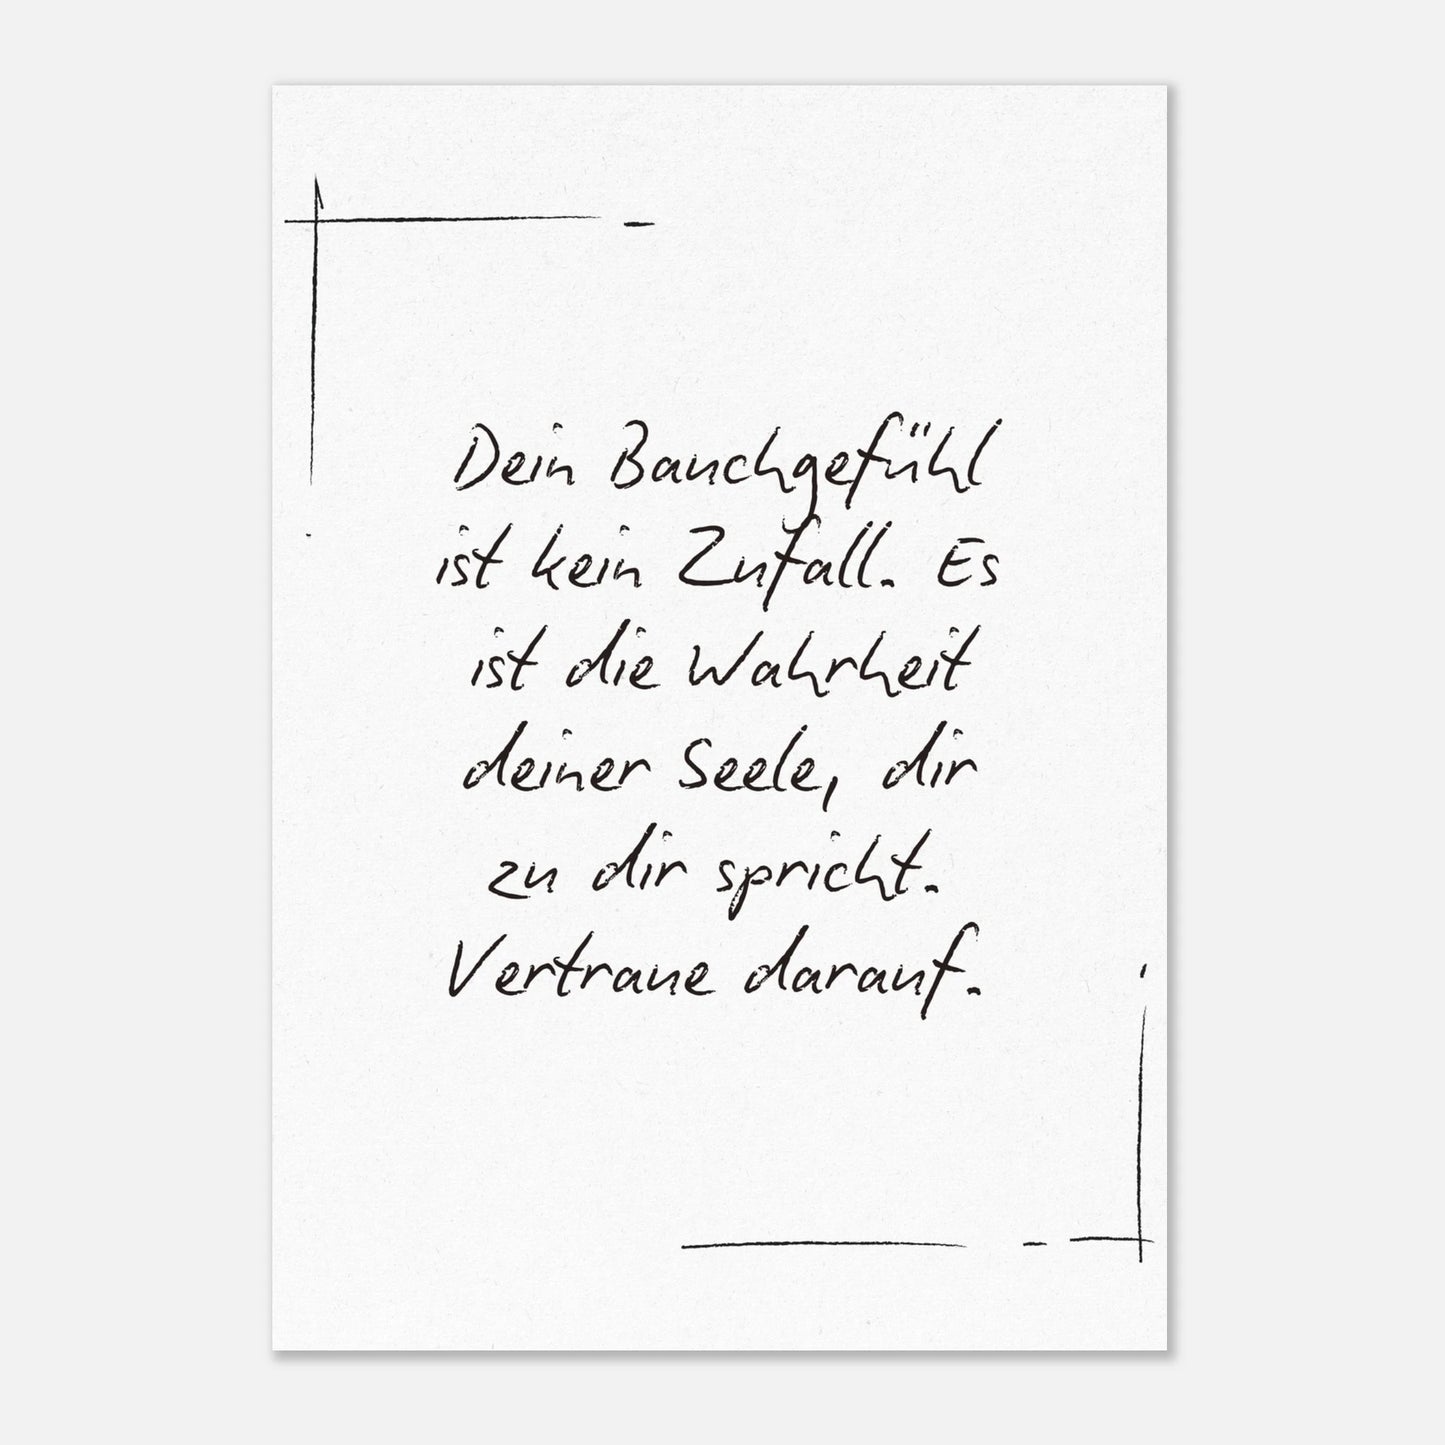 Dein Bauchgefühl
ist kein Zufall. Es
ist die Wahrheit
deiner Seele, dir
zu dir spricht.
Vertraue darauf.